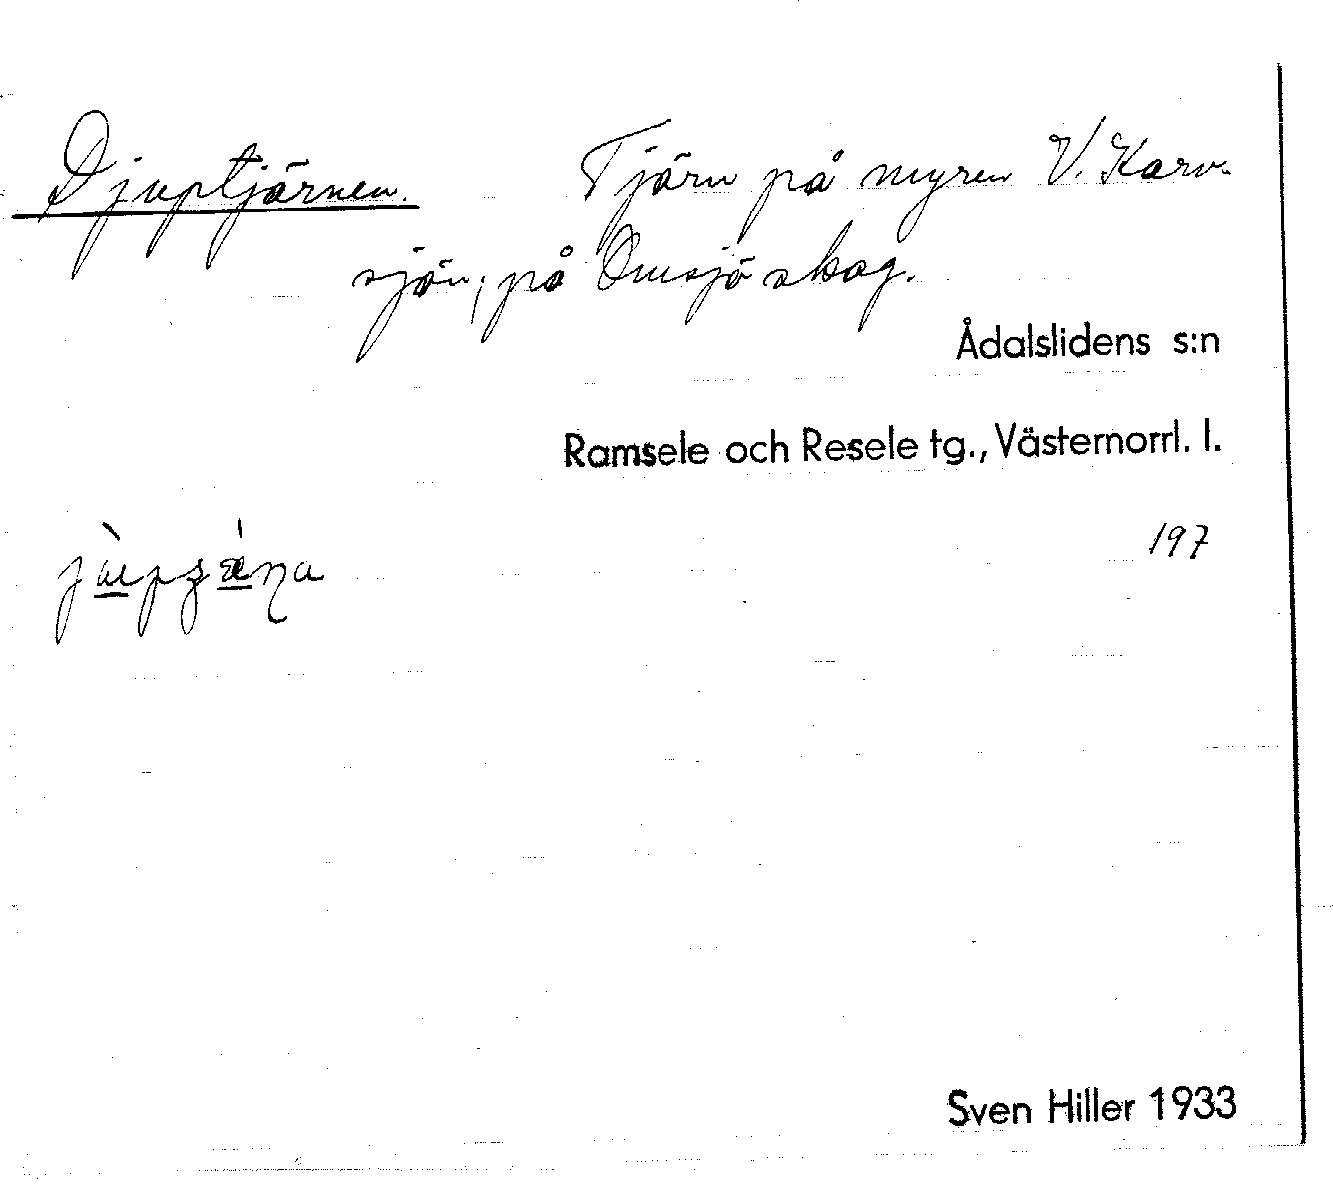 Djuptjärnen. Tjärn på myren V. Karv-
sjön, på Omsjö skog.
Ådalslidens s:n
Ramsele och Resele tg., Västernorrl. l.
197
Sven Hiller 1933